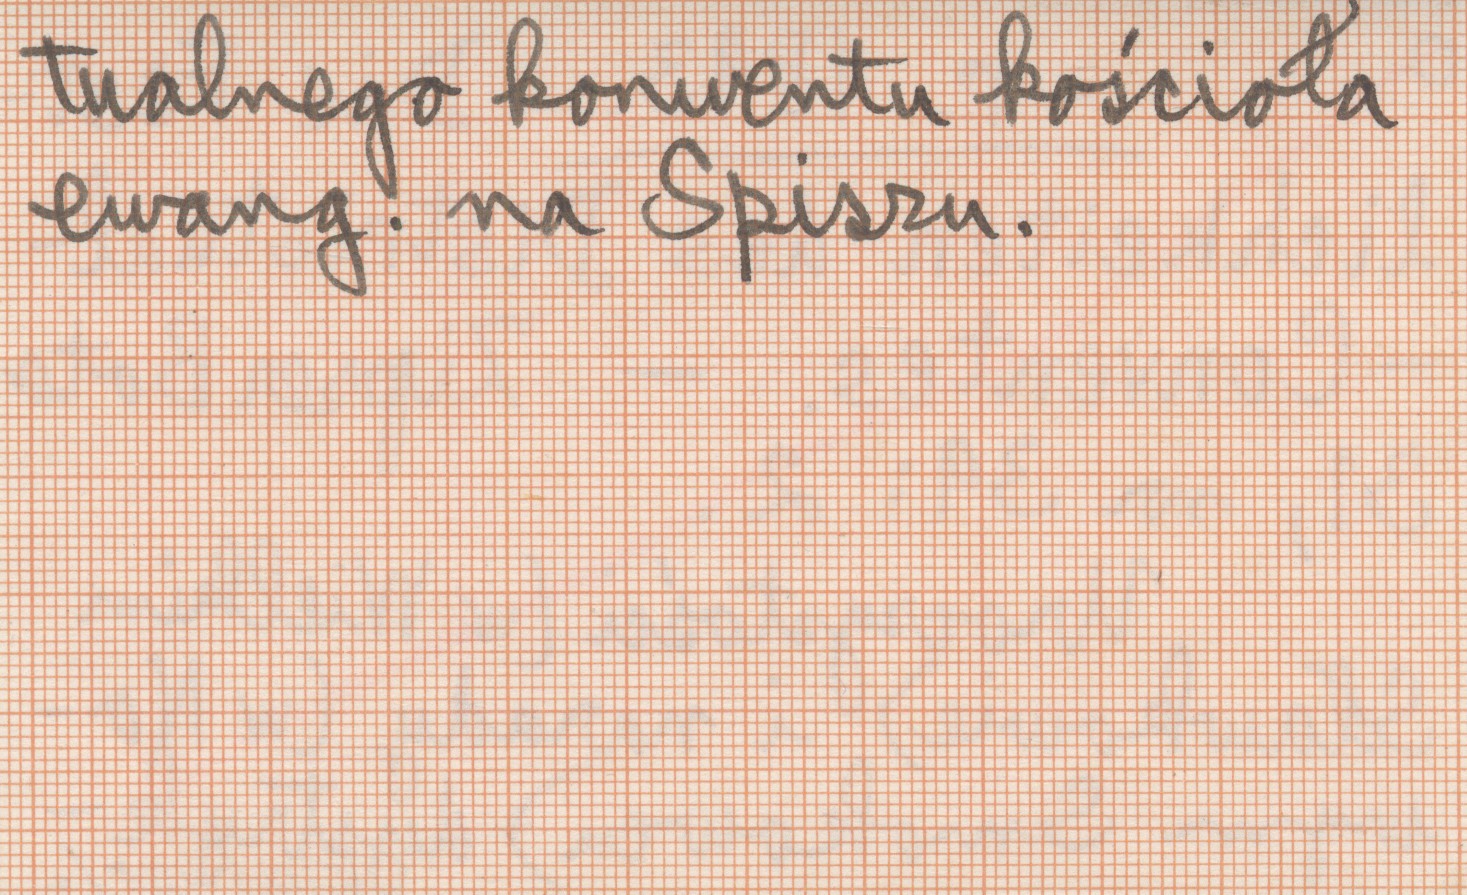 tualnego konwentu kościoła
ewang. na Spiszu.